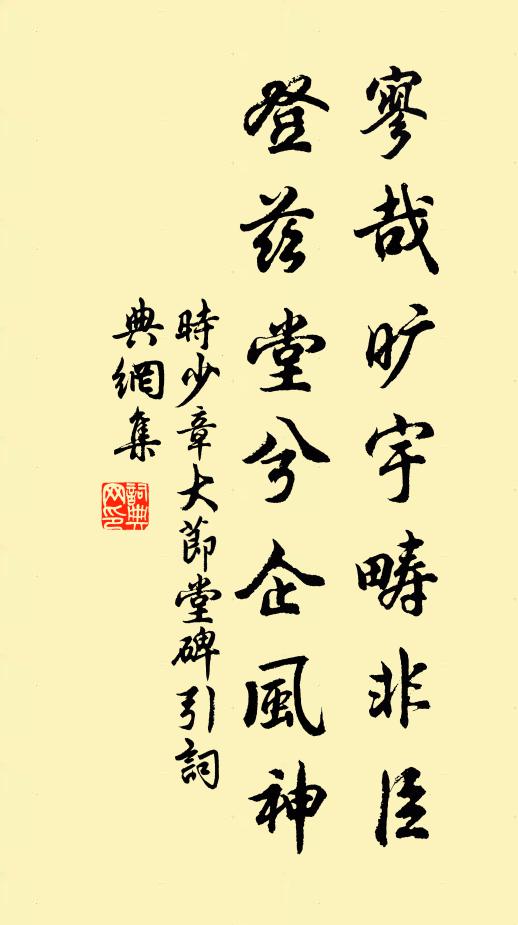 寥哉旷宇畴非臣
登茲堂兮企風神
時少章大節堂碑引詞
典網集
詞典網印